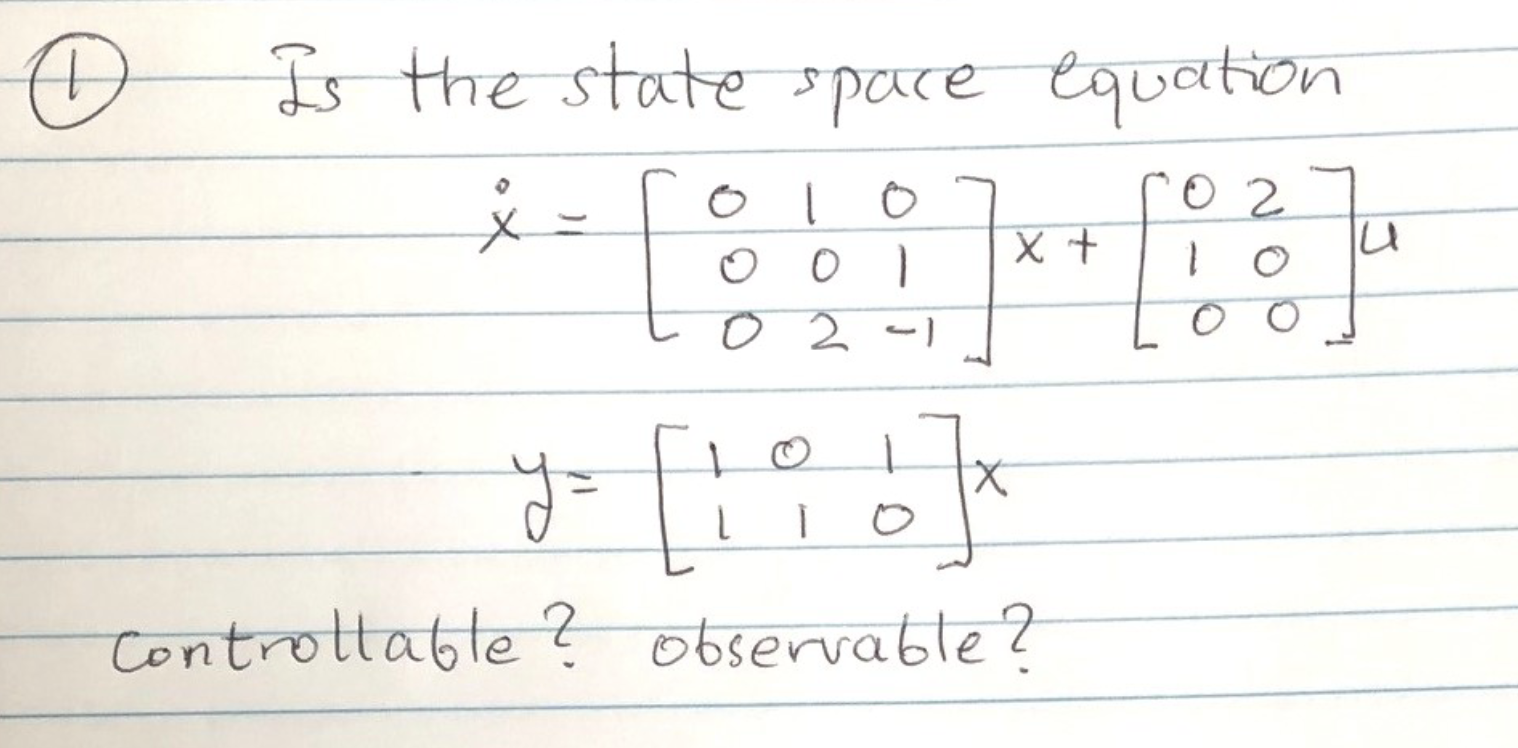 ① Is the state space equation
ẋ = [ 0 1 0 ; 0 0 1 ; 0 2 -1 ] x + [ 0 2 ; 1 0 ; 0 0 ] u
y = [ 1 0 1 ; 1 1 0 ] x
controllable? observable?